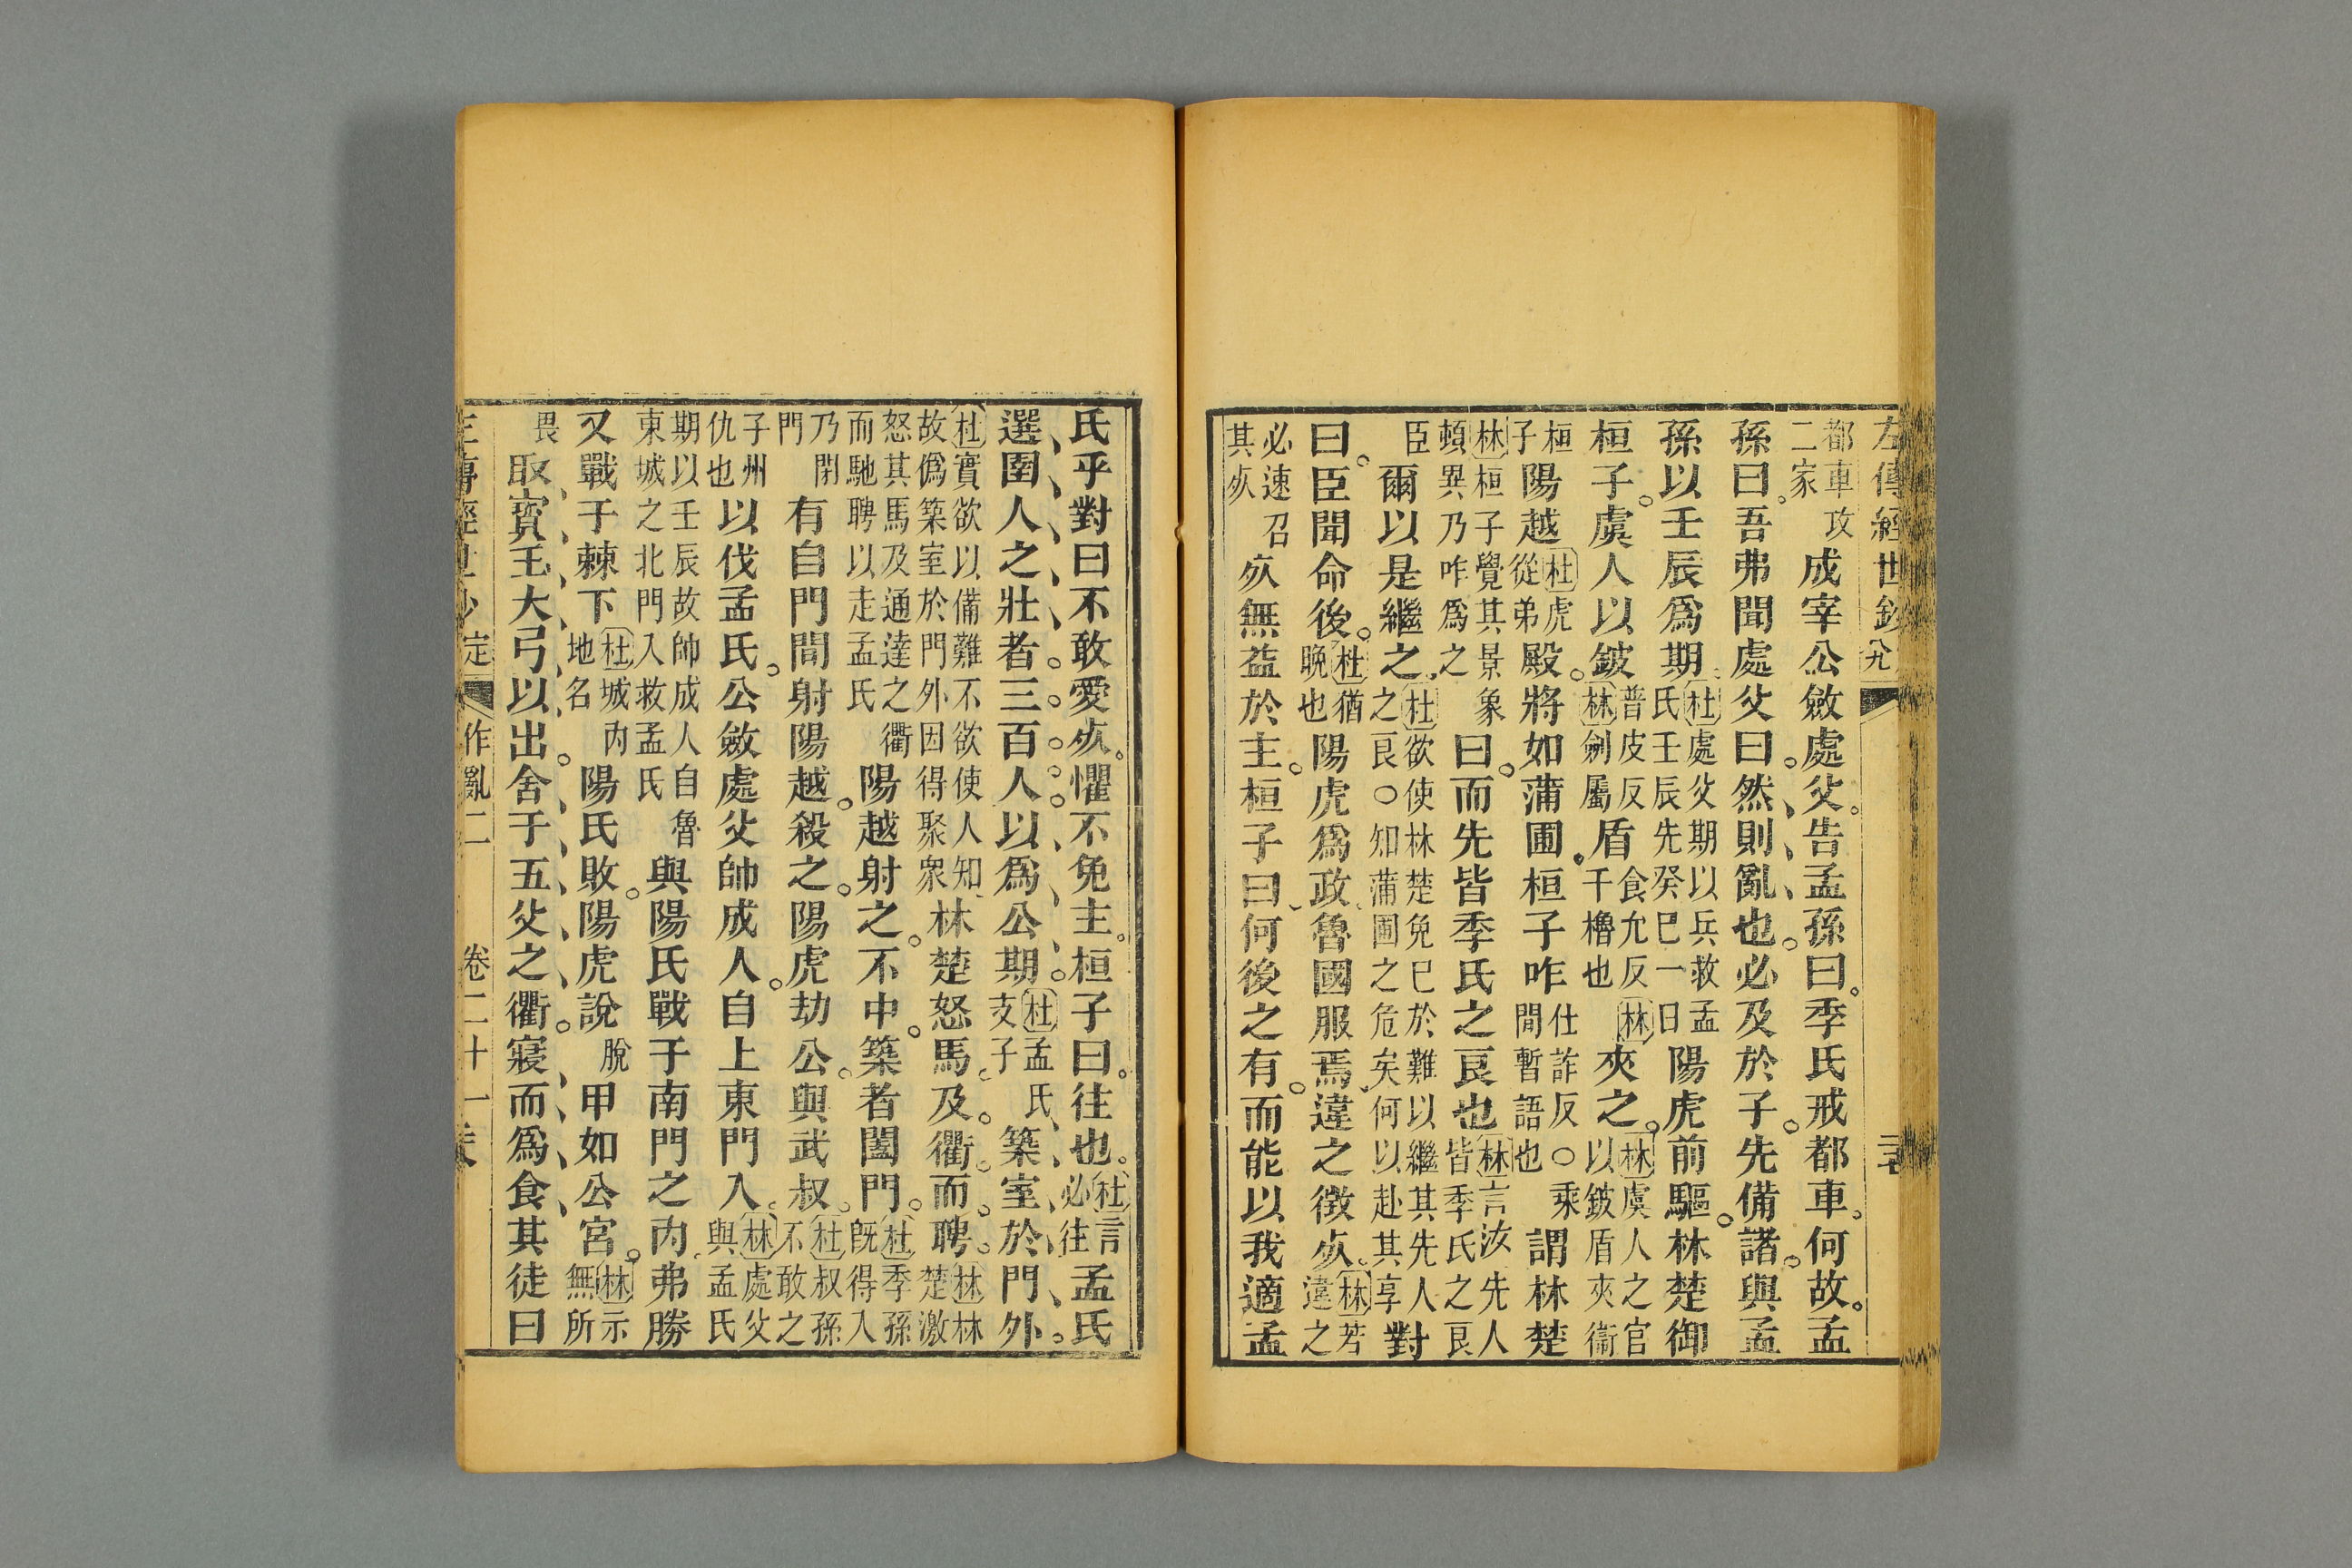 左傳經世鈔
都車攻二家成宰公斂處父。告孟孫曰。季氏戒都車。何故。孟
孫曰。吾弗聞處父曰。然則亂也。必及於子。先備諸。與孟
孫以壬辰爲期。杜處父期以兵救孟氏壬辰先癸巳一日陽虎前驅。林楚御
桓子。虞人以鈹普皮反林劍屬盾食允反林干櫓也夾之。林虞人之官以鈹盾夾衞
桓子陽越杜虎從弟殿。將如蒲圃。桓子咋仕詐反○乘間暫語也謂林楚
林桓子覺其景象頓異乃咋爲之曰。而先皆季氏之良也林言汝先人皆季氏之良
臣爾以是繼之。杜欲使林楚免已於難以繼其先人之良○知蒲圃之危矣何以赴其享對
曰。臣聞命後。杜猶晚也陽虎爲政、魯國服焉、違之徵死。林若違之
必速召其死死無益於主。桓子曰何後之有。而能以我適孟
氏乎對曰不敢愛死。懼不免主。桓子曰。往也。杜言必往孟氏
選圉人之壯者。三百人以爲公期。杜孟氏支子築室於門外。
杜實欲以備難不欲使人知故僞築室於門外因得聚衆林楚怒馬。及衢。而聘。林林楚激
怒其馬及通達之衢而馳聘以走孟氏陽越射之。不中。築者闔門。杜季孫既得入
乃閉門有自門間射陽越。殺之。陽虎劫公。與武叔。杜叔孫不敢之
子州仇也以伐孟氏。公斂處父帥成人。自上東門入。林處父與孟氏
期以壬辰故帥成人自魯東城之北門入救孟氏與陽氏戰于南門之內。弗勝
又戰于棘下杜城內地名陽氏敗。陽虎說脫甲如公宮。林示無所
畏取寶玉大弓以出。舍于五父之衢。寢而爲食其徒曰
定 作亂二 卷二十一